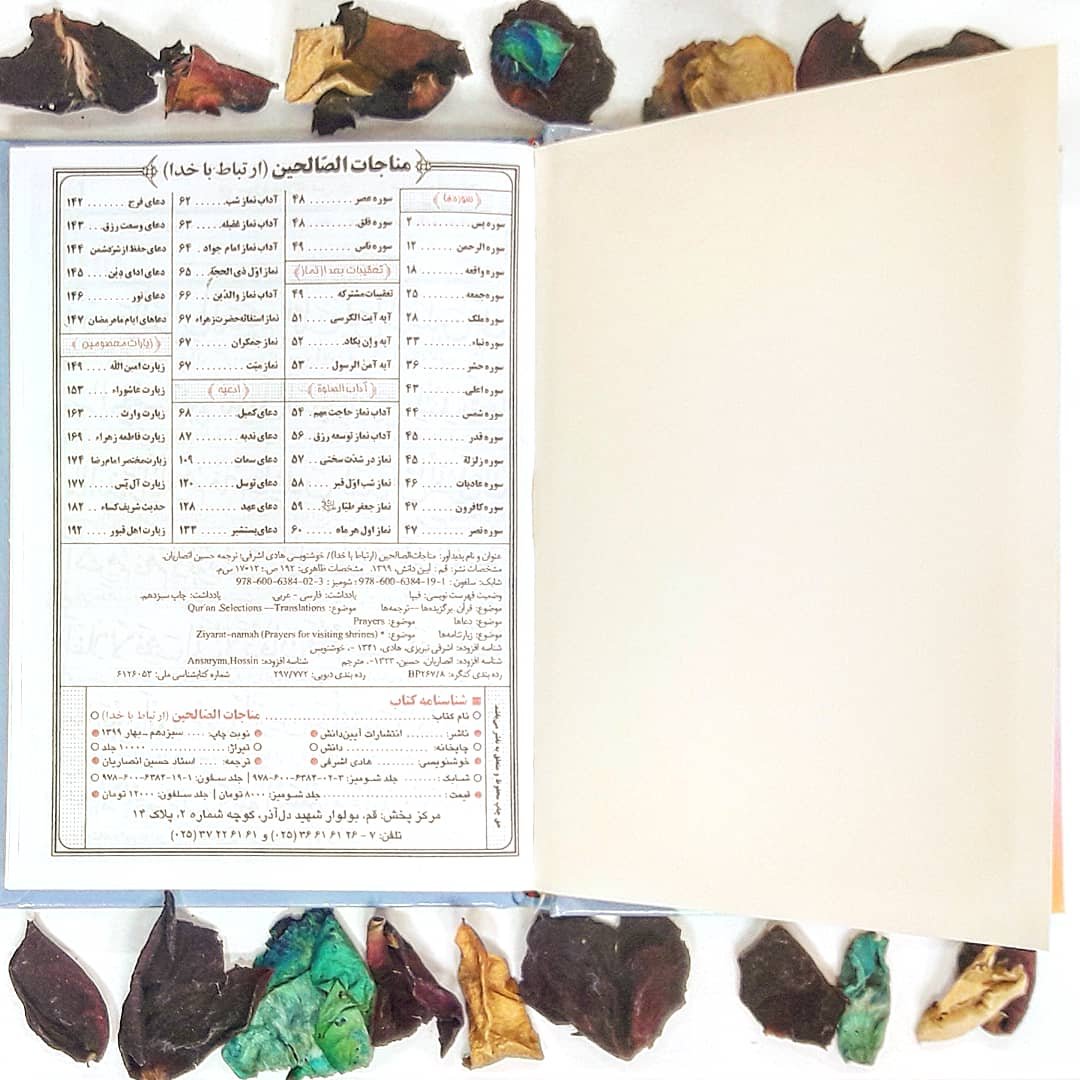 مناجات الصّالحین (ارتباط با خدا)
سوره‌ها
سوره یس .......... ۲
سوره الرحمن ...... ۱۲
سوره واقعه ....... ۱۸
سوره جمعه ....... ۲۵
سوره ملک ........ ۲۸
سوره نباء ......... ۳۳
سوره حشر ....... ۳۶
سوره اعلی ........ ۴۳
سوره شمس ...... ۴۴
سوره قدر ........ ۴۵
سوره زلزلة ....... ۴۵
سوره عادیات ..... ۴۶
سوره کافرون ..... ۴۷
سوره نصر ........ ۴۷
سوره عصر ........ ۴۸
سوره فلق ........ ۴۸
سوره ناس ........ ۴۹
تعقیبات بعد از نماز
تعقیبات مشترکه ..... ۴۹
آیه آیت الکرسی .... ۵۱
آیه و إن یکاد ...... ۵۲
آیه آمن الرسول .... ۵۳
آداب الصلوة
آداب نماز حاجت مهم . ۵۴
آداب نماز توسعه رزق . ۵۶
نماز در شدّت سختی .. ۵۷
نماز شب اوّل قبر .... ۵۸
نماز جعفر طیّار ... ۵۹
نماز اول هر ماه .... ۶۰
آداب نماز شب ...... ۶۲
آداب نماز غفیله .... ۶۳
آداب نماز امام جواد . ۶۴
نماز اوّل ذی الحجة .. ۶۵
آداب نماز والدین ... ۶۶
نماز استغاثه حضرت زهراء ۶۷
نماز جمکران ....... ۶۷
نماز میّت ......... ۶۷
ادعیه
دعای کمیل ........ ۶۸
دعای ندبه ........ ۸۷
دعای سمات ....... ۱۰۹
دعای توسل ....... ۱۲۰
دعای عهد ........ ۱۲۸
دعای یستشیر ..... ۱۳۳
دعای فرج ....... ۱۴۲
دعای وسعت رزق .. ۱۴۳
دعای حفظ از شرّ دشمن ۱۴۴
دعای ادای دِیْن .... ۱۴۵
دعای نور ........ ۱۴۶
دعاهای ایام ماه رمضان ۱۴۷
زیارات معصومین
زیارت امین اللّه .... ۱۴۹
زیارت عاشوراء .... ۱۵۳
زیارت وارث ...... ۱۶۳
زیارت فاطمه زهراء . ۱۶۹
زیارت مختصر امام رضا ۱۷۴
زیارت آل یٓس ..... ۱۷۷
حدیث شریف کساء .. ۱۸۲
زیارت اهل قبور ... ۱۹۲
عنوان و نام پدیدآور: مناجات‌الصالحین (ارتباط با خدا)/ خوشنویسی هادی اشرفی؛ ترجمه حسین انصاریان.
مشخصات نشر: قم : آیین دانش، ۱۳۹۹. مشخصات ظاهری: ۱۹۲ ص؛ ۱۲×۱۷ س‌م.
شابک: سلفون : 1-19-6384-600-978؛ شومیز : 3-02-6384-600-978
وضعیت فهرست نویسی: فیپا یادداشت: فارسی - عربی. یادداشت: چاپ سیزدهم.
موضوع: قرآن. برگزیده‌ها -- ترجمه‌ها موضوع: Qur'an. Selections -- Translations
موضوع: دعاها موضوع: Prayers
موضوع: زیارتنامه‌ها موضوع: * Ziyarat-namah (Prayers for visiting shrines)
شناسه افزوده: اشرفی تبریزی، هادی، ۱۳۴۱ -، خوشنویس
شناسه افزوده: انصاریان، حسین، ۱۳۲۳-، مترجم شناسه افزوده: Ansaryan, Hossin
رده بندی کنگره: BP۲۶۷/۸ رده بندی دیویی: ۲۹۷/۷۷۲ شماره کتابشناسی ملی: ۶۱۲۶۰۵۳
شناسنامه کتاب
نام کتاب: ........ مناجات الصّالحین (ارتباط با خدا)
ناشر: ........ انتشارات آیین‌دانش نوبت چاپ: .... سیزدهم - بهار ۱۳۹۹
چاپخانه: ........ دانش تیراژ: ........ ۱۰۰۰۰ جلد
خوشنویسی: ........ هادی اشرفی ترجمه: .... استاد حسین انصاریان
شابک: ....... جلد شومیز: ۳-۰۲-۶۳۸۴-۶۰۰-۹۷۸ | جلد سلفون: ۱-۱۹-۶۳۸۴-۶۰۰-۹۷۸
قیمت: ........ جلد شومیز: ۸۰۰۰ تومان | جلد سلفون: ۱۲۰۰۰ تومان
مرکز پخش: قم، بولوار شهید دل‌آذر، کوچه شماره ۲، پلاک ۱۴
تلفن: ۷ - ۲۶ ۶۱ ۶۱ ۳۶ (۰۲۵) و ۶۱ ۶۱ ۲۲ ۳۷ (۰۲۵)
حق چاپ محفوظ و متعلق به ناشر می‌باشد